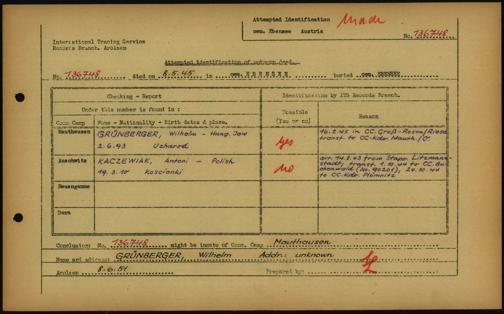 Attempted Identification Made
cem. Ebensee Austria
No. 136748
International Tracing Service
Records Branch, Arolsen
Attempted identification of unknown dead.
No. 136748 died on 8.5.45 in cem. buried cem.
Checking - Report
Identification by ITS Records Branch.
Under this number is found in :
Possible
(Yes or no)
Reason
Conc Camp
Name - Nationality - Birth dates & place.
Mauthausen
GRÜNBERGER, Wilhelm - Hung. Jew
2.6.93 Uzhorod
yes
16.2.45 in CC. Groß-Rosen/
transf. to CC-Kdr. Mauth.
Auschwitz
KACZEWIAK, Antoni - Polish
19.3.10 Koscianki
no
arr. 14.2.43 from Stapo. Litzmann-
stadt, transf. 1.10.44 to CC. Bu
chenwald (No. 90205), 24.10.44
to CC-Kdr.
Neuengamme
Dora
Conclusion: No. 136748 might be inmate of Conc. Camp Mauthausen
Name and address: GRÜNBERGER, Wilhelm Addr.: unknown
Arolsen 8.6.51 Prepared by: